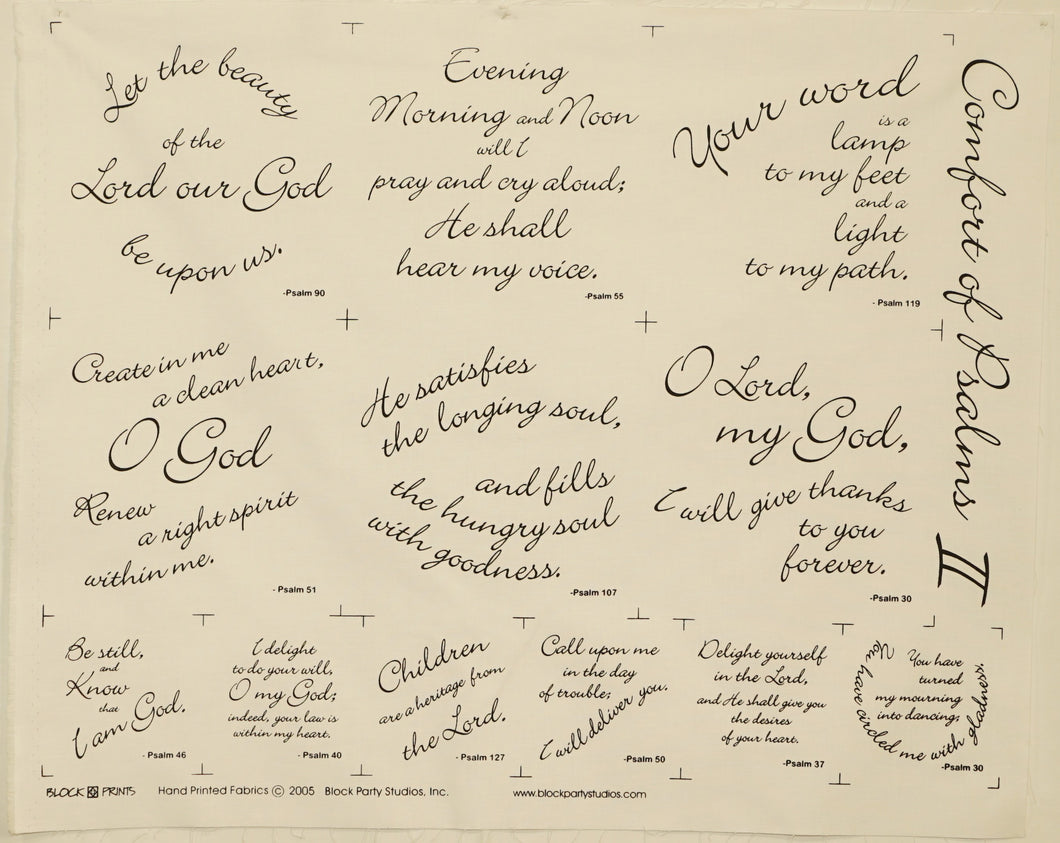 Let the beauty
of the
Lord our God
be upon us.
-Psalm 90
Evening
Morning and Noon
will I
pray and cry aloud;
He shall
hear my voice.
-Psalm 55
Your word
is a
lamp
to my feet
and a
light
to my path.
- Psalm 119
Comfort of Psalms II
Create in me
a clean heart,
O God
Renew
a right spirit
within me.
- Psalm 51
He satisfies
the longing soul,
and fills
the hungry soul
with goodness.
-Psalm 107
O Lord,
my God,
I will give thanks
to you
forever.
-Psalm 30
Be still,
and
Know
that
I am God.
- Psalm 46
I delight
to do your will,
O my God;
indeed, your law is
within my heart.
- Psalm 40
Children
are a heritage from
the Lord.
- Psalm 127
Call upon me
in the day
of trouble;
I will deliver you.
-Psalm 50
Delight yourself
in the Lord,
and He shall give you
the desires
of your heart.
-Psalm 37
You have
turned
my mourning
into dancing;
You have circled me with gladness.
-Psalm 30
BLOCK PRINTS Hand Printed Fabrics © 2005 Block Party Studios, Inc. www.blockpartystudios.com